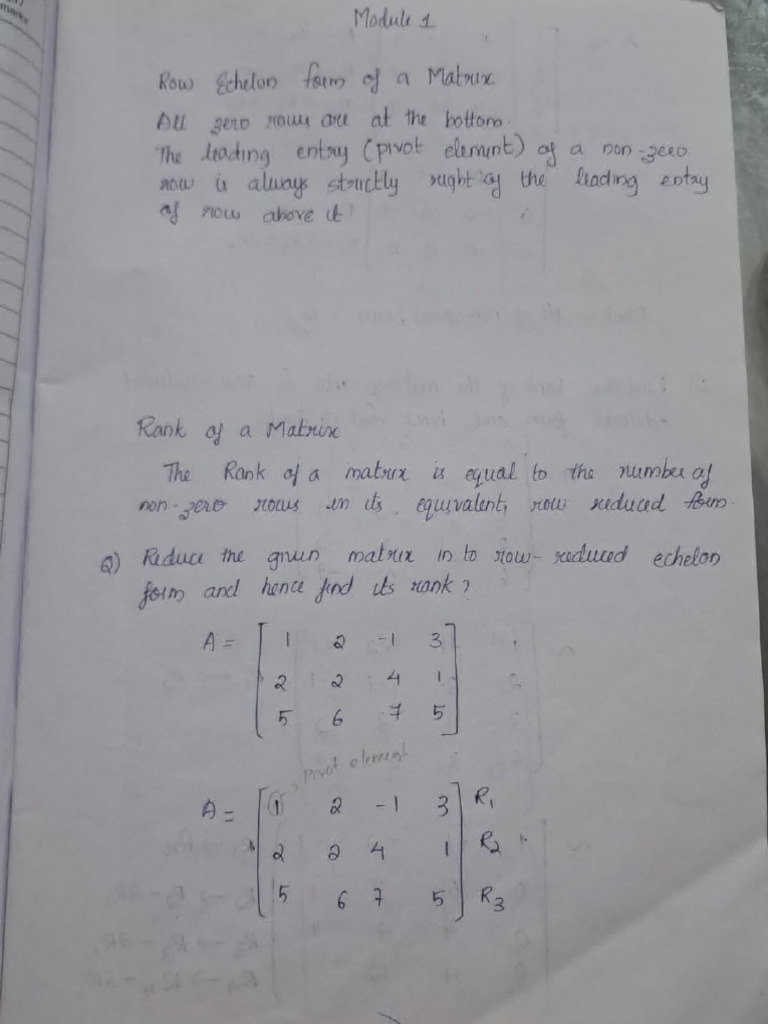 Module 1
Row Echelon form of a Matrix
All zero rows are at the bottom.
The leading entry (pivot element) of a non-zero
row is always strictly right of the leading entry
of row above it
Rank of a Matrix
The Rank of a matrix is equal to the number of
non-zero rows in its equivalent, row reduced form.
Q) Reduce the given matrix in to row-reduced echelon
form and hence find its rank?
A = [ 1 2 -1 3 ]
2 2 4 1
5 6 7 5
Pivot element
A = [ 1 2 -1 3 ] R1
2 2 4 1 R2
5 6 7 5 R3